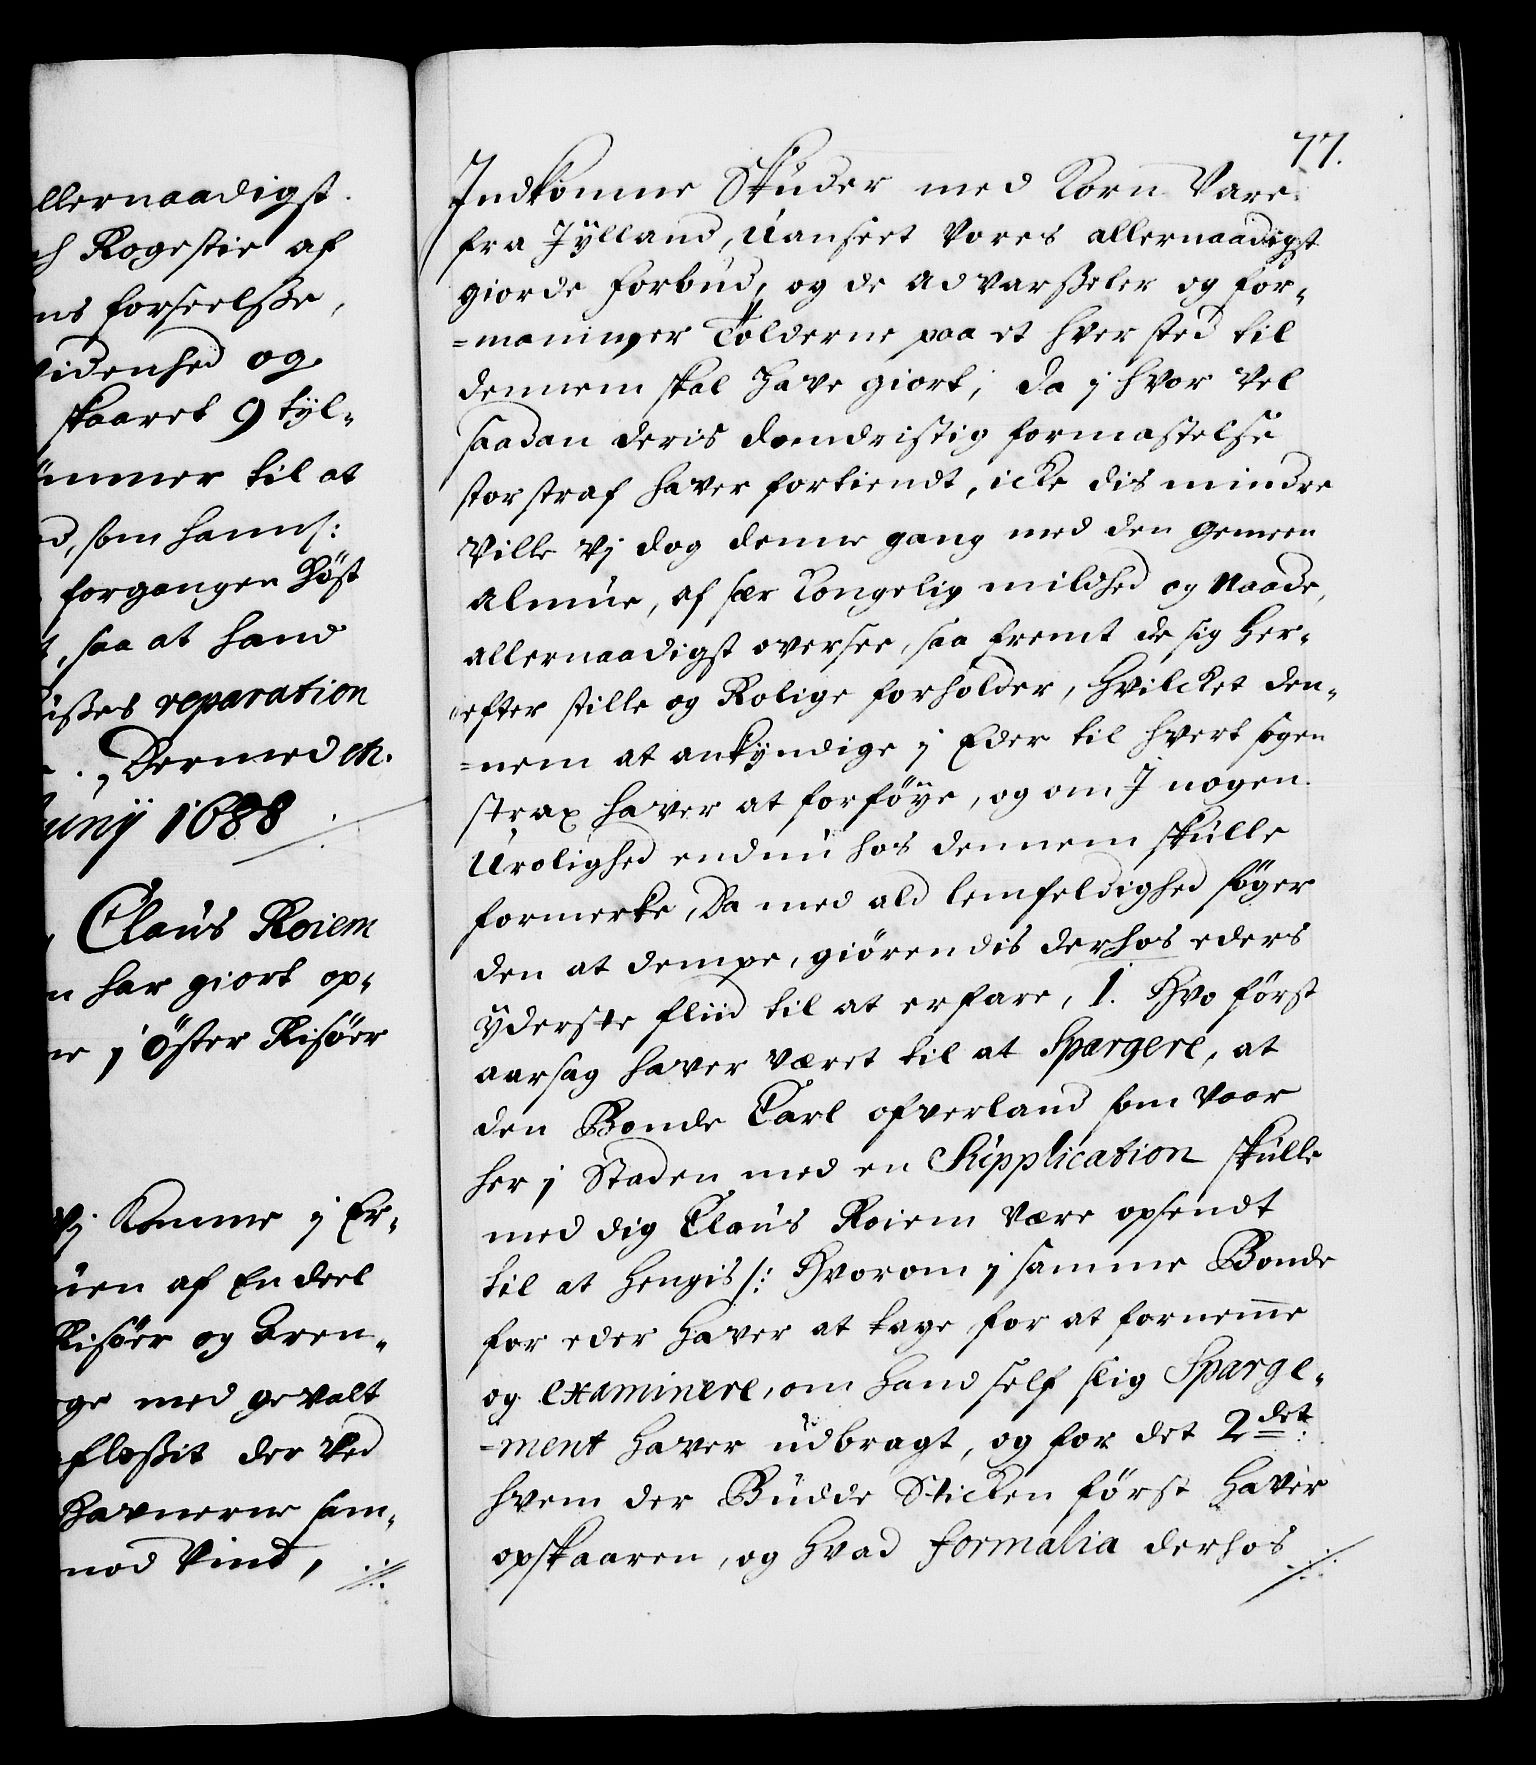 llernaadigst.
ch Rogestie af
ns forseelsse,
videnhed og
skaaret 9 tyl-
ümmer til at
d, som hannß:
forgangen Höst
t, saa at hand
üsses reparation
. , Dermed etc.
Juny 1688
Claus Roiem
n har giort op-
ne j öster Risöer
Vj komme j Er-
uen af En deel
Risöer og Kren-
ge med gevalt
flossit der Ved
Havnerne sam-
mod Vind, ./.
77.
Indkomne Skuder med Korn Vare
fra Jylland, Uanseet Vores allernaadigst
giorde forbud, og de advarsseler og for-
=maninger Tolderne paa et hver sted til
dennem skal have giort; da j hvor vel
saadan deris dumdristig formastelse
stor straf haver fortiendt, icke dis mindre
Ville Vj dog denne gang med den gemeen
Almue, af sær Kongelig mildhed og Naade,
allernaadigst oversee, saa fremt de sig her-
efter stille og Rolige forholder, hvilcket den-
=nem at ankyndige j Eder til hvert sogen
strax haver at forföye, og om J nogen
Urolighed endnu hos dennem skulle
formerke, Da med ald lemfeldighed söger
den at dempe, giörendis derhos eders
yderste fliid til at erfare, 1. Hvo först
aarsag haver været til at Spargere, at
den Bonde Carl ofverland som Vaar
her j Staden med en Supplication skulle
med dig Claus Roiem Være opsendt
til at hengis /: Hvorom j samme Bonde
for eder haver at tage for at fornemme
og examinere, om hand self slig Sparge-
=ment haver udbragt, og for det 2det:
hvem der Budde Sticken först haver
opskaaren, og hvad formalia derhos ./.